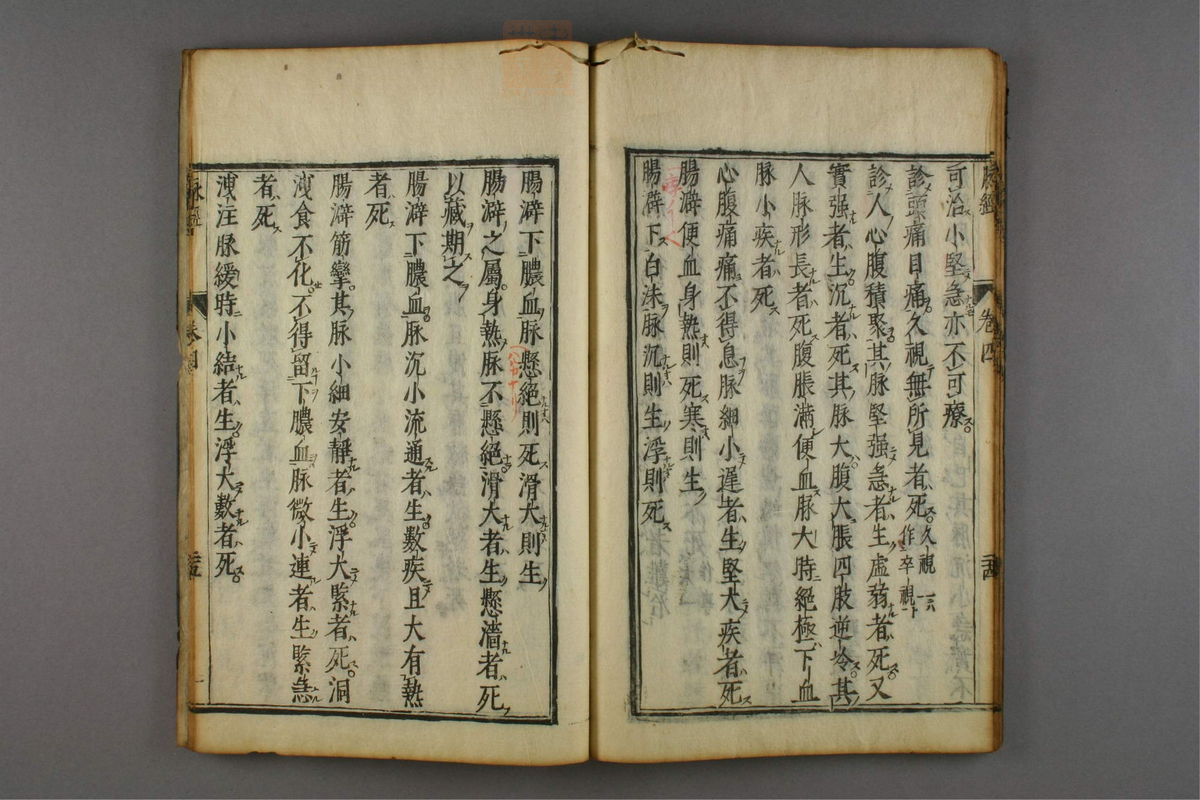 可治小堅急亦不可療
診頭痛目痛久視無所見者死久視一作卒視
診人心腹積聚其脉堅强急者生虛弱者死又
實强者生沉者死其脉大腹大脹四肢逆冷其
人脉形長者死腹脹滿便血脉大時絕極下血
脉小疾者死
心腹痛痛不得息脉細小遲者生堅大疾者死
腸澼便血身熱則死寒則生
腸澼下白沫脉沉則生浮則死
腸澼下膿血脉懸絕則死滑大則生
腸澼之屬身熱脉不懸絕滑大者生懸濇者死
以藏期之
腸澼下膿血脉沉小流通者生數疾且大有熱
者死
腸澼筋攣其脉小細安靜者生浮大緊者死洞
洩食不化不得留下膿血脉微小連者生緊急
者死
洩注脉緩時小結者生浮大數者死
脉經 卷四